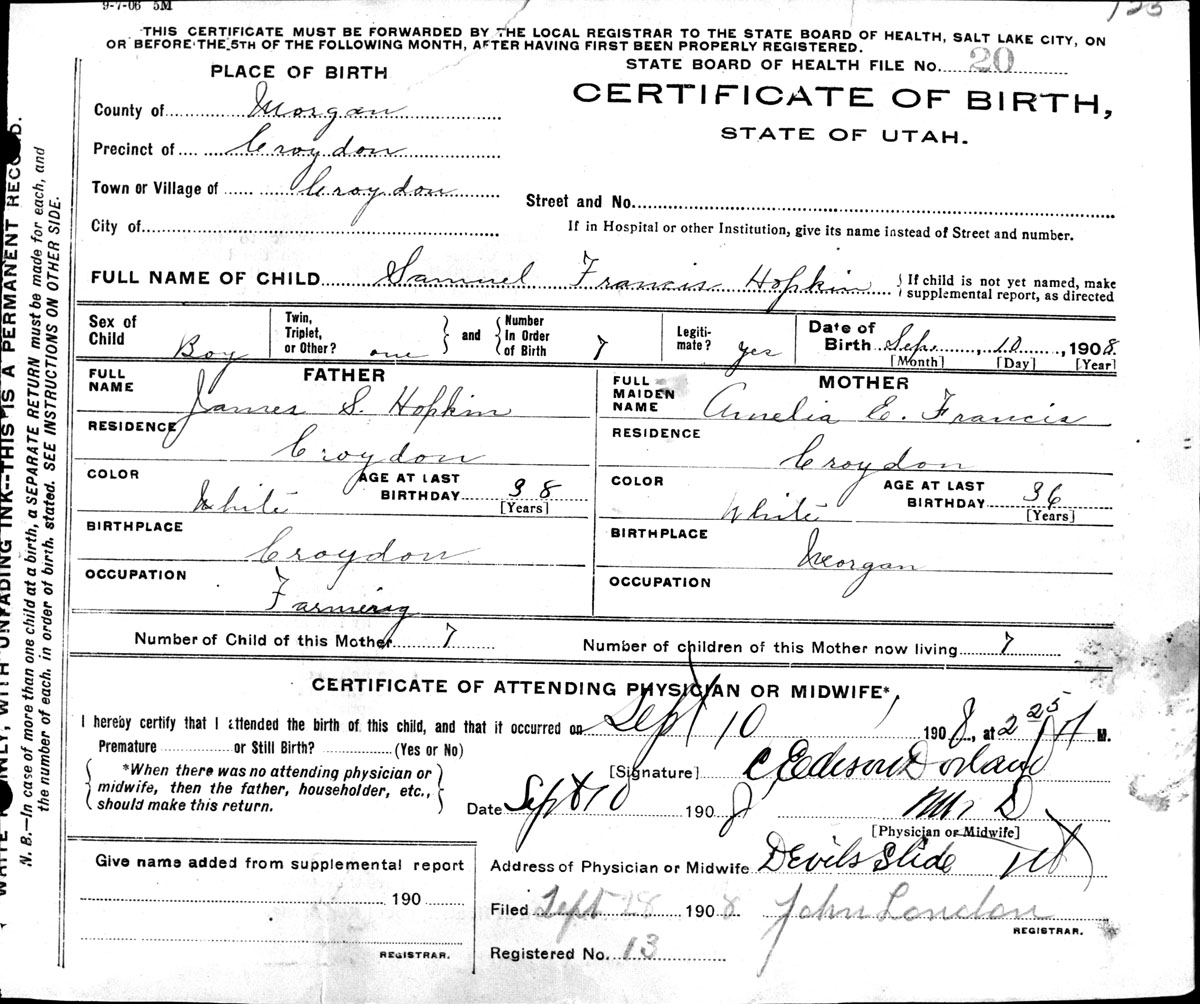 9-7-06 5M
THIS CERTIFICATE MUST BE FORWARDED BY THE LOCAL REGISTRAR TO THE STATE BOARD OF HEALTH, SALT LAKE CITY, ON
OR BEFORE THE 5TH OF THE FOLLOWING MONTH, AFTER HAVING FIRST BEEN PROPERLY REGISTERED.
STATE BOARD OF HEALTH FILE No. 20
PLACE OF BIRTH
CERTIFICATE OF BIRTH,
STATE OF UTAH.
County of Morgan
Precinct of Croydon
Town or Village of Croydon
Street and No.
City of
If in Hospital or other Institution, give its name instead of Street and number.
FULL NAME OF CHILD Samuel Francis Hopkin {If child is not yet named, make
supplemental report, as directed
Sex of Child Boy
Twin, Triplet, or Other? one } and { Number In Order of Birth 7
Legitimate? yes
Date of Birth Sep. 10, 1908
[Month] [Day] [Year]
FATHER
FULL NAME James S. Hopkin
RESIDENCE Croydon
COLOR White AGE AT LAST BIRTHDAY 38
[Years]
BIRTHPLACE Croydon
OCCUPATION Farming
MOTHER
FULL MAIDEN NAME Amelia E. Francis
RESIDENCE Croydon
COLOR White AGE AT LAST BIRTHDAY 36
[Years]
BIRTHPLACE Morgan
OCCUPATION
Number of Child of this Mother 7 Number of children of this Mother now living 7
CERTIFICATE OF ATTENDING PHYSICIAN OR MIDWIFE*
I hereby certify that I attended the birth of this child, and that it occurred on Sept 10, 1908, at 2 25 P M.
Premature or Still Birth? (Yes or No)
{ *When there was no attending physician or
midwife, then the father, householder, etc.,
should make this return. }
[Signature] C Edison Dorland
Date Sept 10 1908 M. D
[Physician or Midwife]
Address of Physician or Midwife Devils Slide Ut
Give name added from supplemental report
190
REGISTRAR.
Filed Sept 1908 John London
REGISTRAR.
Registered No. 13
ONLY, WITH UNFADING INK--THIS IS A PERMANENT RECORD.
N. B.—In case of more than one child at a birth, a SEPARATE RETURN must be made for each, and
the number of each, in order of birth, stated. SEE INSTRUCTIONS ON OTHER SIDE.